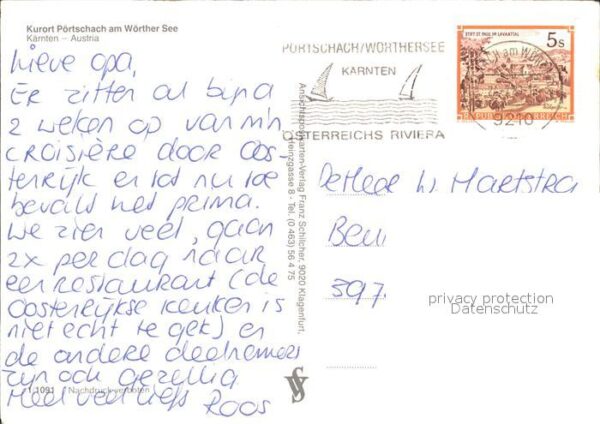 Kurort Pörtschach am Wörther See
Kärnten – Austria
Lieve opa,
Er zitten al bijna
2 weken op van m'n
croisière door Oos-
tenrijk en tot nu toe
bevalt het prima.
We zien veel, gaan
2x per dag naar
een restaurant (de
Oostenrijkse keuken is
niet echt te gek) en
de andere deelnemers
zijn ook gezellig
Heel veel liefs Roos
1.1091 Nachdruck verboten
Ansichtspostkarten-Verlag Franz Schilcher, 9020 Klagenfurt,
Heinzgasse 8 - Tel. (0 463) 56 4 75
PÖRTSCHACH/WÖRTHERSEE
KÄRNTEN
ÖSTERREICHS RIVIERA
STIFT ST. PAUL IM LAVANTTAL
5 S
am
9210
REPUBLIK ÖSTERREICH
De Heer W. Martstra
397
privacy protection
Datenschutz